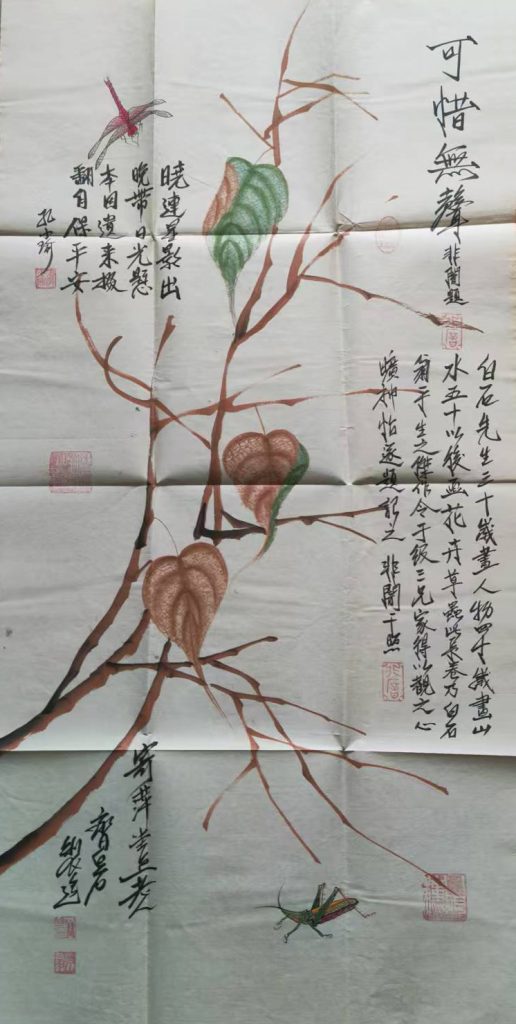 可惜無聲
非闇題
白石先生三十歲畫人物四十歲畫山
水五十以後画花卉草蟲此長卷乃白石
翁平生之傑作今于級三兄家得以觀之心
曠神怡遂題記之 非闇于照
曉連星影出
晚帶日光懸
本因遺来掇
翻自保平安
寄萍堂上老
齊白石